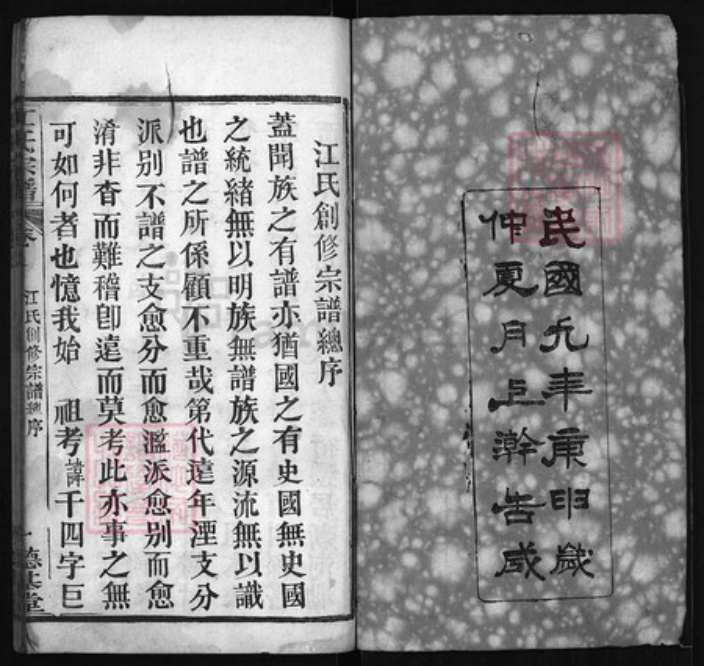 民國九年庚申歲
仲夏月上澣告成
江氏創修宗譜總序
蓋聞族之有譜亦猶國之有史國無史國
之統緒無以明族無譜族之源流無以識
也譜之所係顧不重哉第代遠年湮支分
派別不譜之支愈分而愈濫派愈別而愈
淆非杳而難稽卽遠而莫考此亦事之無
可如何者也憶我始 祖考諱千四字巨
江氏宗譜
江氏創修宗譜總序
一 德基堂